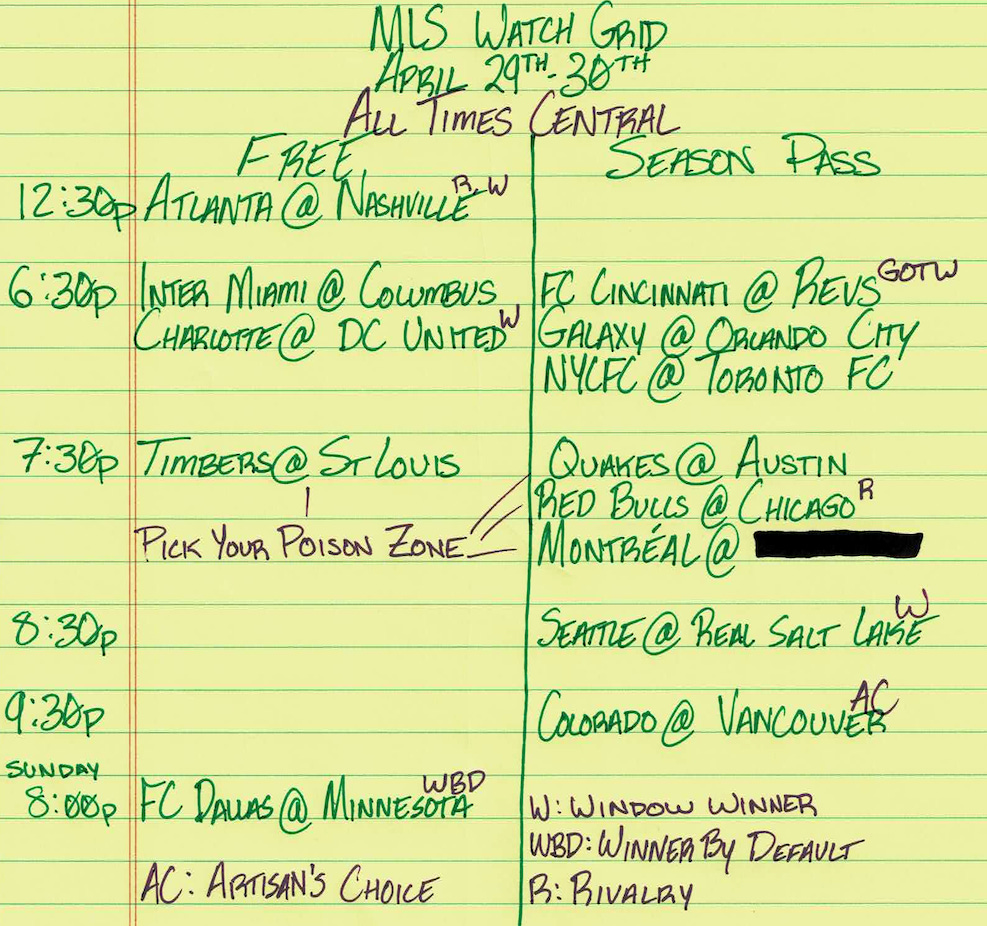 MLS WATCH GRID
APRIL 29TH-30TH
ALL TIMES CENTRAL
FREE SEASON PASS
12:30p ATLANTA @ NASHVILLE R, W
6:30p INTER MIAMI @ COLUMBUS FC CINCINNATI @ REVS GOTW
CHARLOTTE @ DC UNITED W GALAXY @ ORLANDO CITY
NYCFC @ TORONTO FC
7:30p TIMBERS @ ST LOUIS QUAKES @ AUSTIN
RED BULLS @ CHICAGO R
PICK YOUR POISON ZONE MONTRÉAL @
8:30p SEATTLE @ REAL SALT LAKE W
9:30p COLORADO @ VANCOUVER AC
SUNDAY
8:00p FC DALLAS @ MINNESOTA WBD W: WINDOW WINNER
WBD: WINNER BY DEFAULT
AC: ARTISAN'S CHOICE R: RIVALRY